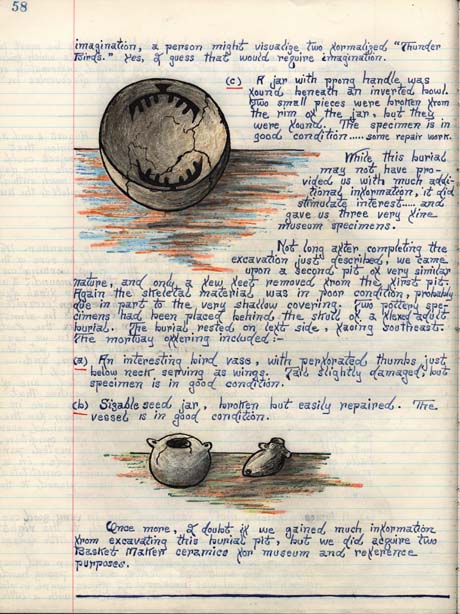 58
imagination, a person might visualize two formalized "Thunder
Birds." Yes, I guess that would require imagination.
(c) A jar with prong handle was
found beneath an inverted bowl.
Two small pieces were broken from
the rim of the jar, but they
were found. The specimen is in
good condition.....some repair work.
While this burial
may not have pro-
vided us with much addi-
tional information, it did
stimulate interest..... and
gave us three very fine
museum specimens.
Not long after completing the
excavation just described, we came
upon a second pit of very similar
nature, and only a few feet removed from the first pit.
Again the skeletal material was in poor condition, probably
due in part to the very shallow covering. Two pottery spe-
cimens had been placed behind the skull of a flexed adult
burial. The burial rested on left side, facing southeast.
The mortuay offering included:-
(a) An interesting bird vase, with perforated thumbs just
below neck serving as wings. Tail slightly damaged, but
specimen is in good condition.
(b) Sizable seed jar, broken but easily repaired. The
vessel is in good condition.
Once more, I doubt if we gained much information
from excavating this burial pit, but we did acquire two
Basket Maker ceramics for museum and reference
purposes.